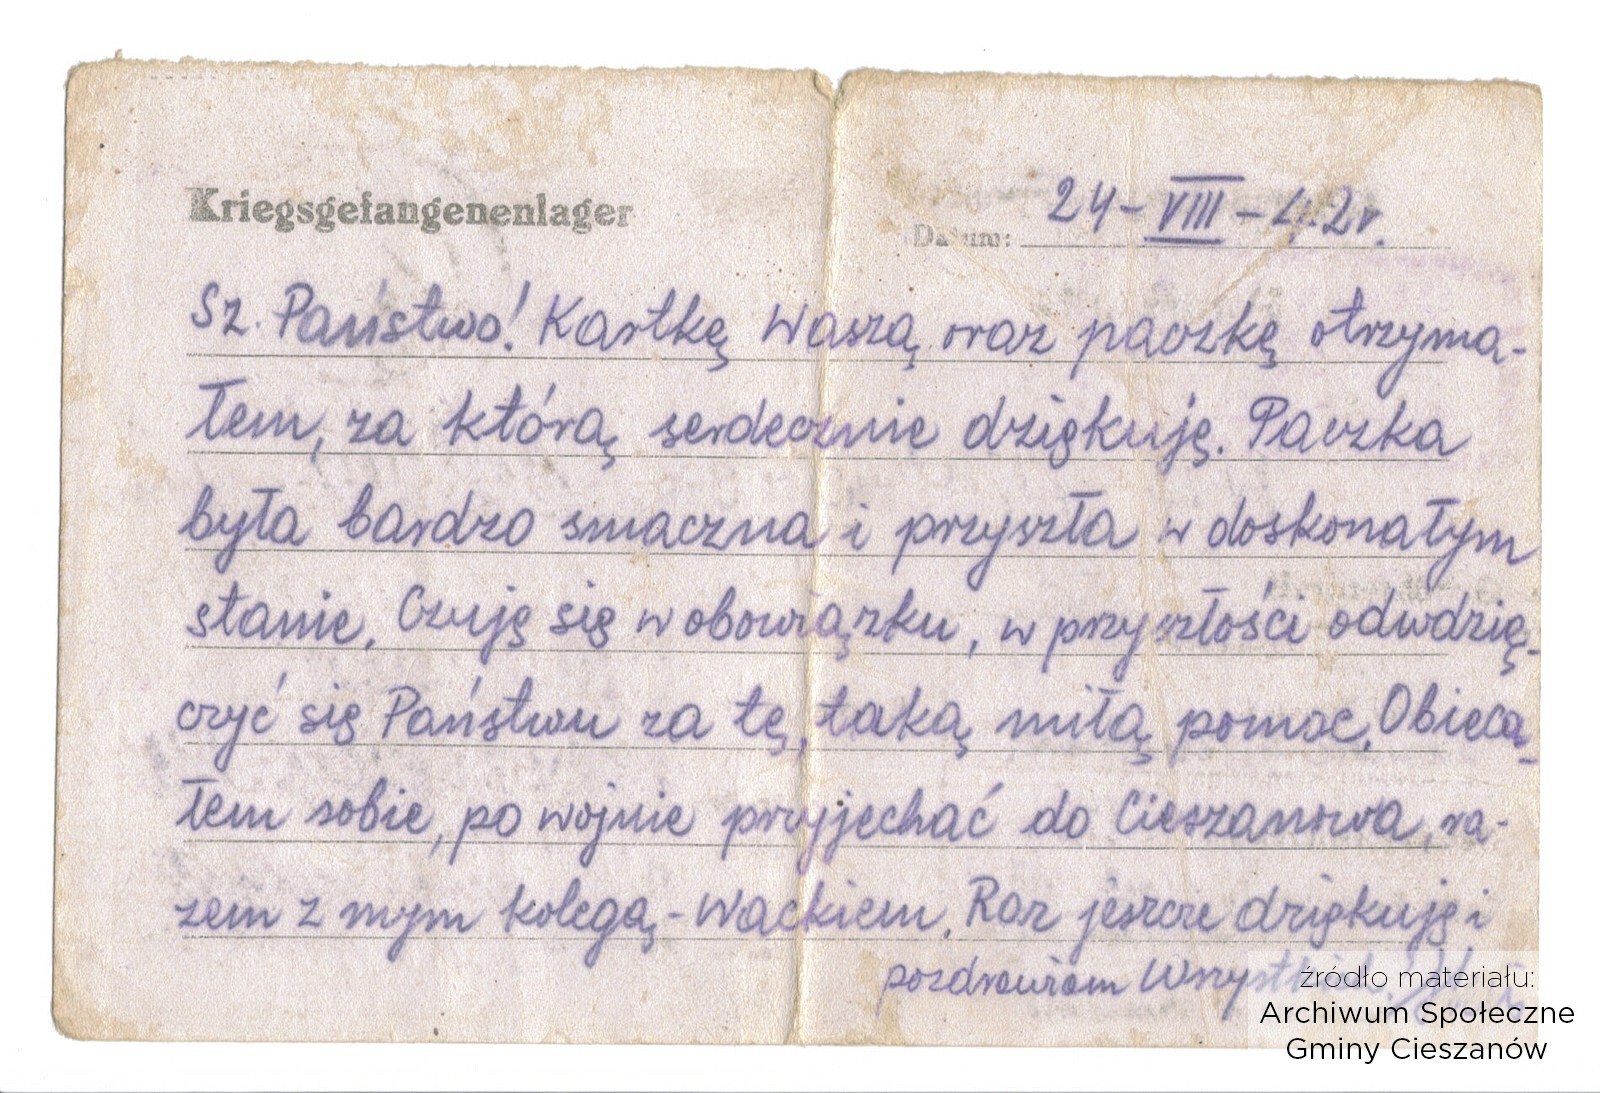 Kriegsgefangenenlager
Datum: 24-VIII-42r.
Sz. Państwo! Kartkę Waszą oraz paczkę otrzyma-
łem, za którą serdecznie dziękuję. Paczka
była bardzo smaczna i przyszła w doskonałym
stanie. Czuję się w obowiązku, w przyszłości odwdzię-
czyć się Państwu za tę, taką miłą pomoc. Obieca-
łem sobie, po wojnie przyjechać do Cieszanowa, ra-
zem z mym kolegą - Wackiem. Raz jeszcze dziękuję i
pozdrawiam Wszystkich.
źródło materiału:
Archiwum Społeczne
Gminy Cieszanów